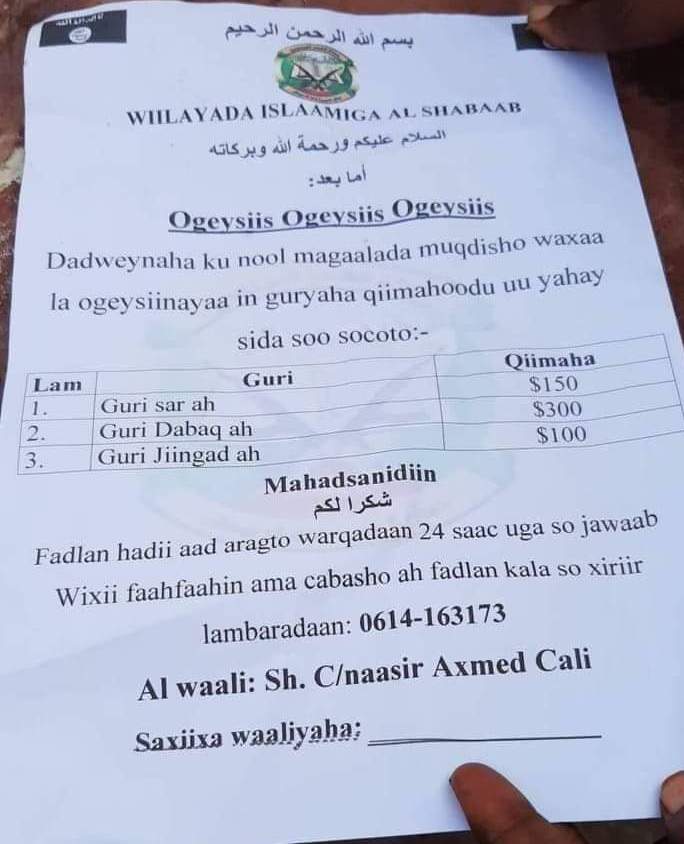 بسم الله الرحمن الرحيم
WIILAYADA ISLAAMIGA AL SHABAAB
السلام عليكم ورحمة الله وبركاته
أما بعد:
Ogeysiis Ogeysiis Ogeysiis
Dadweynaha ku nool magaalada muqdisho waxaa
la ogeysiinayaa in guryaha qiimahoodu uu yahay
sida soo socoto:-
Lam Guri Qiimaha
1. Guri sar ah $150
2. Guri Dabaq ah $300
3. Guri Jiingad ah $100
Mahadsanidiin
شكرا لكم
Fadlan hadii aad aragto warqadaan 24 saac uga so jawaab
Wixii faahfaahin ama cabasho ah fadlan kala so xiriir
lambaradaan: 0614-163173
Al waali: Sh. C/naasir Axmed Cali
Saxiixa waaliyaha: